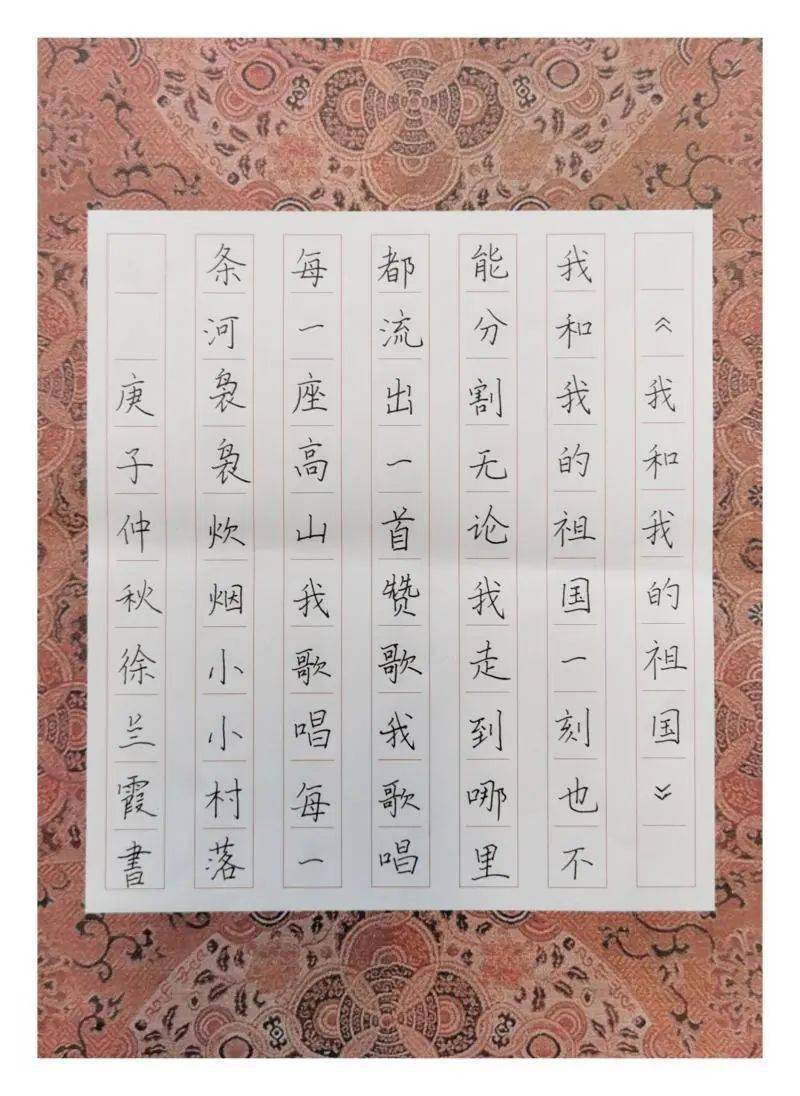 《我和我的祖国》
我和我的祖国一刻也不
能分割无论我走到哪里
都流出一首赞歌我歌唱
每一座高山我歌唱每一
条河袅袅炊烟小小村落
庚子仲秋徐兰霞書